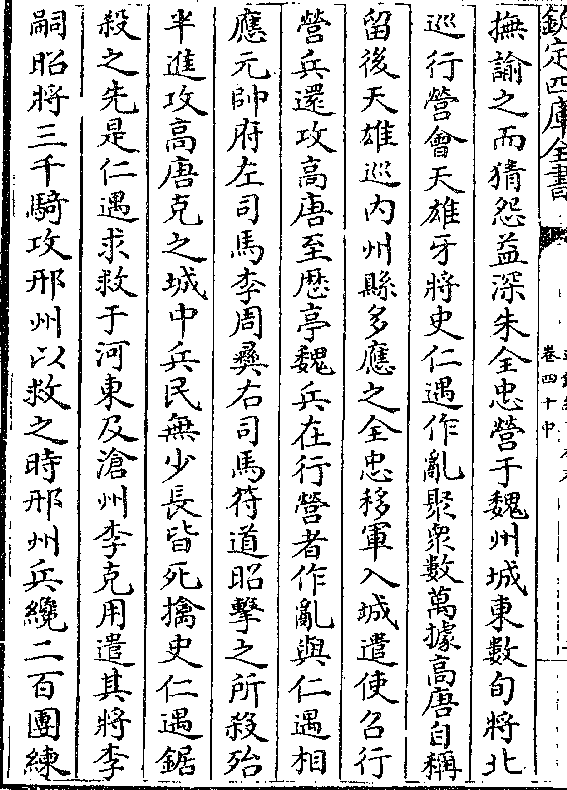 欽定四庫全書
卷四十中
撫諭之而猜怨益深朱全忠營于魏州城東數旬將北
巡行營會天雄牙將史仁遇作亂聚衆數萬據高唐自稱
留後天雄巡内州縣多應之全忠移軍入城遣使召行
營兵還攻高唐至歴亭魏兵在行營者作亂與仁遇相
應元帥府左司馬李周彛右司馬符道昭擊之所殺殆
半進攻高唐克之城中兵民無少長皆死擒史仁遇鋸
殺之先是仁遇求救于河東及滄州李克用遣其將李
嗣昭將三千騎攻邢州以救之時邢州兵纔二百團練